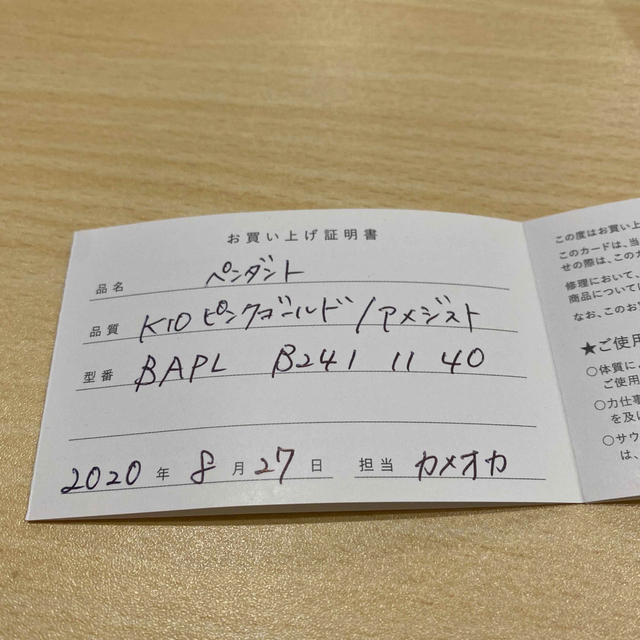 お買い上げ証明書
品名 ペンダント
品質 K10ピンクゴールド/アメジスト
型番 BAPL B241 11 40
2020年8月27日 担当 カメオカ
この度はお買い上
このカードは、当
せの際は、このカ
修理において、
商品については
なお、このお買
★ご使用
○体質によ
ご使用
○力仕事
を及ぼ
○サウ
は、